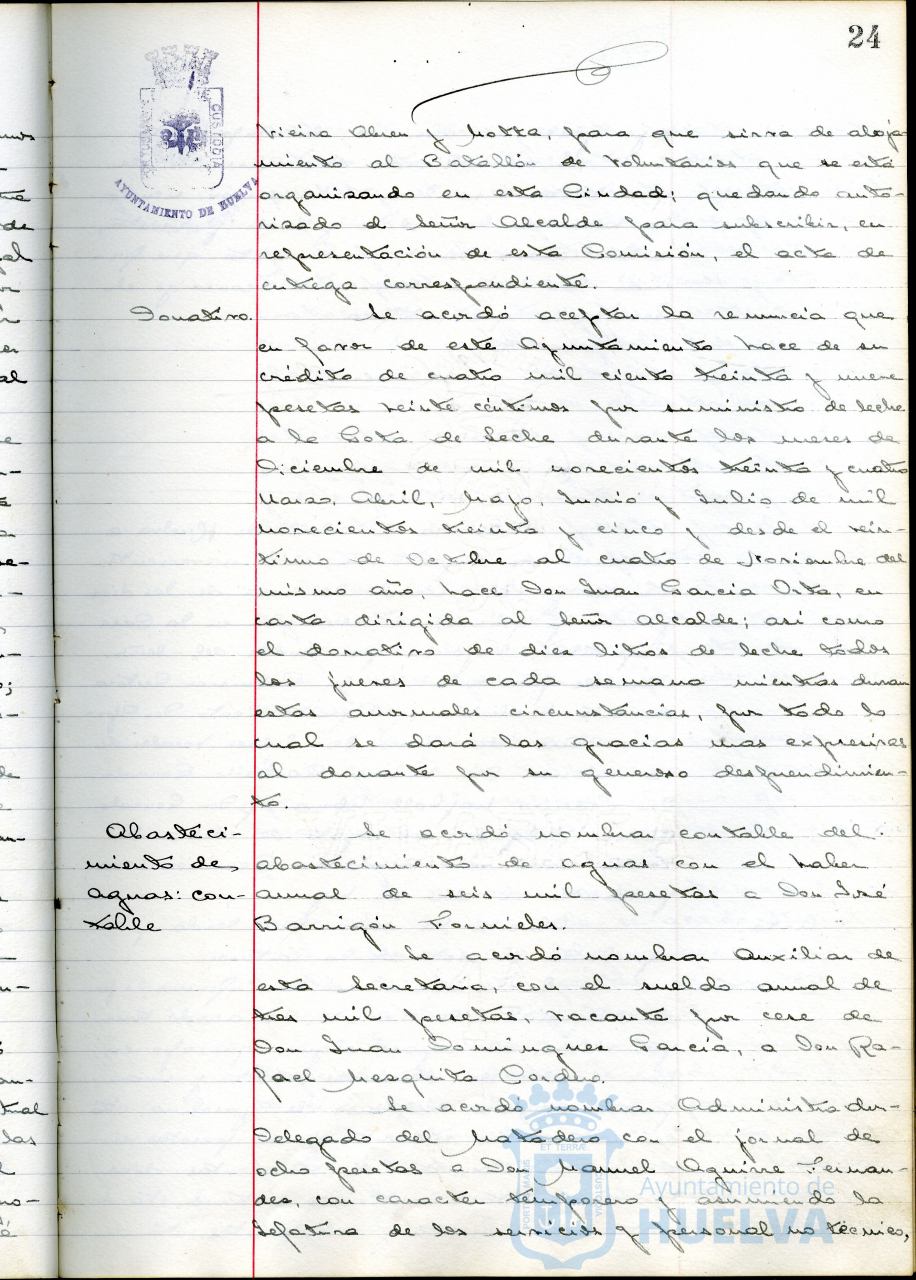 24
AYUNTAMIENTO DE HUELVA
CUSTODIA
Vieira Abreu y Motta, para que sirva de aloja-
miento al Batallón de Voluntarios que se está
organizando en esta Ciudad; quedando auto-
rizado el Señor Alcalde para subscribir, en
representación de esta Comisión, el acta de
entrega correspondiente.
Donativo.
Se acordó aceptar la renuncia que
en favor de este Ayuntamiento hace de su
crédito de cuatro mil ciento treinta y nueve
pesetas veinte céntimos por suministro de leche
a la Gota de Leche durante los meses de
Diciembre de mil novecientos treinta y cuatro
Marzo, Abril, Mayo, Junio y Julio de mil
novecientos treinta y cinco y desde el vein-
tiuno de Octubre al cuatro de Noviembre del
mismo año, hace Don Juan García Orta, en
carta dirigida al Señor Alcalde; así como
el donativo de diez litros de leche todos
los jueves de cada semana mientras duran
estas anormales circunstancias, por todo lo
cual se dará las gracias mas expresivas
al donante por su generoso desprendimien-
to.
Abasteci-
miento de
aguas: con-
table
Se acordó nombrar contable del
abastecimiento de aguas con el haber
anual de seis mil pesetas a Don José
Barrigón Fornieles.
Se acordó nombrar Auxiliar de
esta Secretaria, con el sueldo anual de
tres mil pesetas, vacante por cese de
Don Juan Domínguez García, a Don Ra-
fael Mezquita Cordero.
Se acordó nombrar Administrador-
Delegado del Matadero con el jornal de
ocho pesetas a Don Manuel Aguirre Fernan-
dez, con caracter temporero y asumiendo la
Jefatura de los servicios y personal no técnico,
Ayuntamiento de
HUELVA